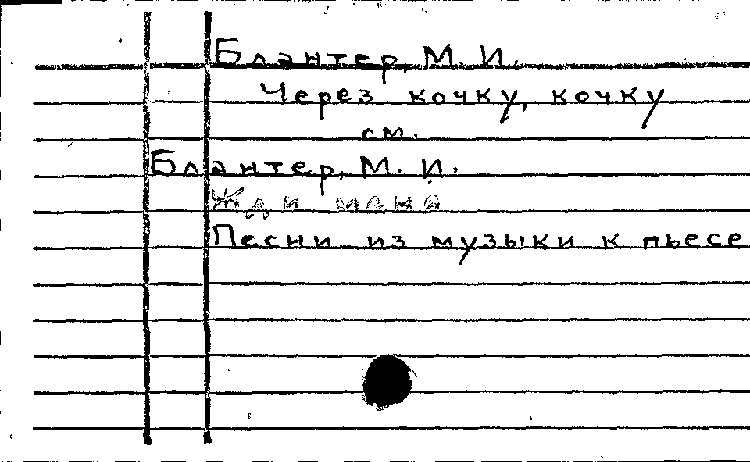 Блантер, М. И.
Через кочку, кочку
см.
Блантер, М. И.
Жди меня
Песни из музыки к пьесе